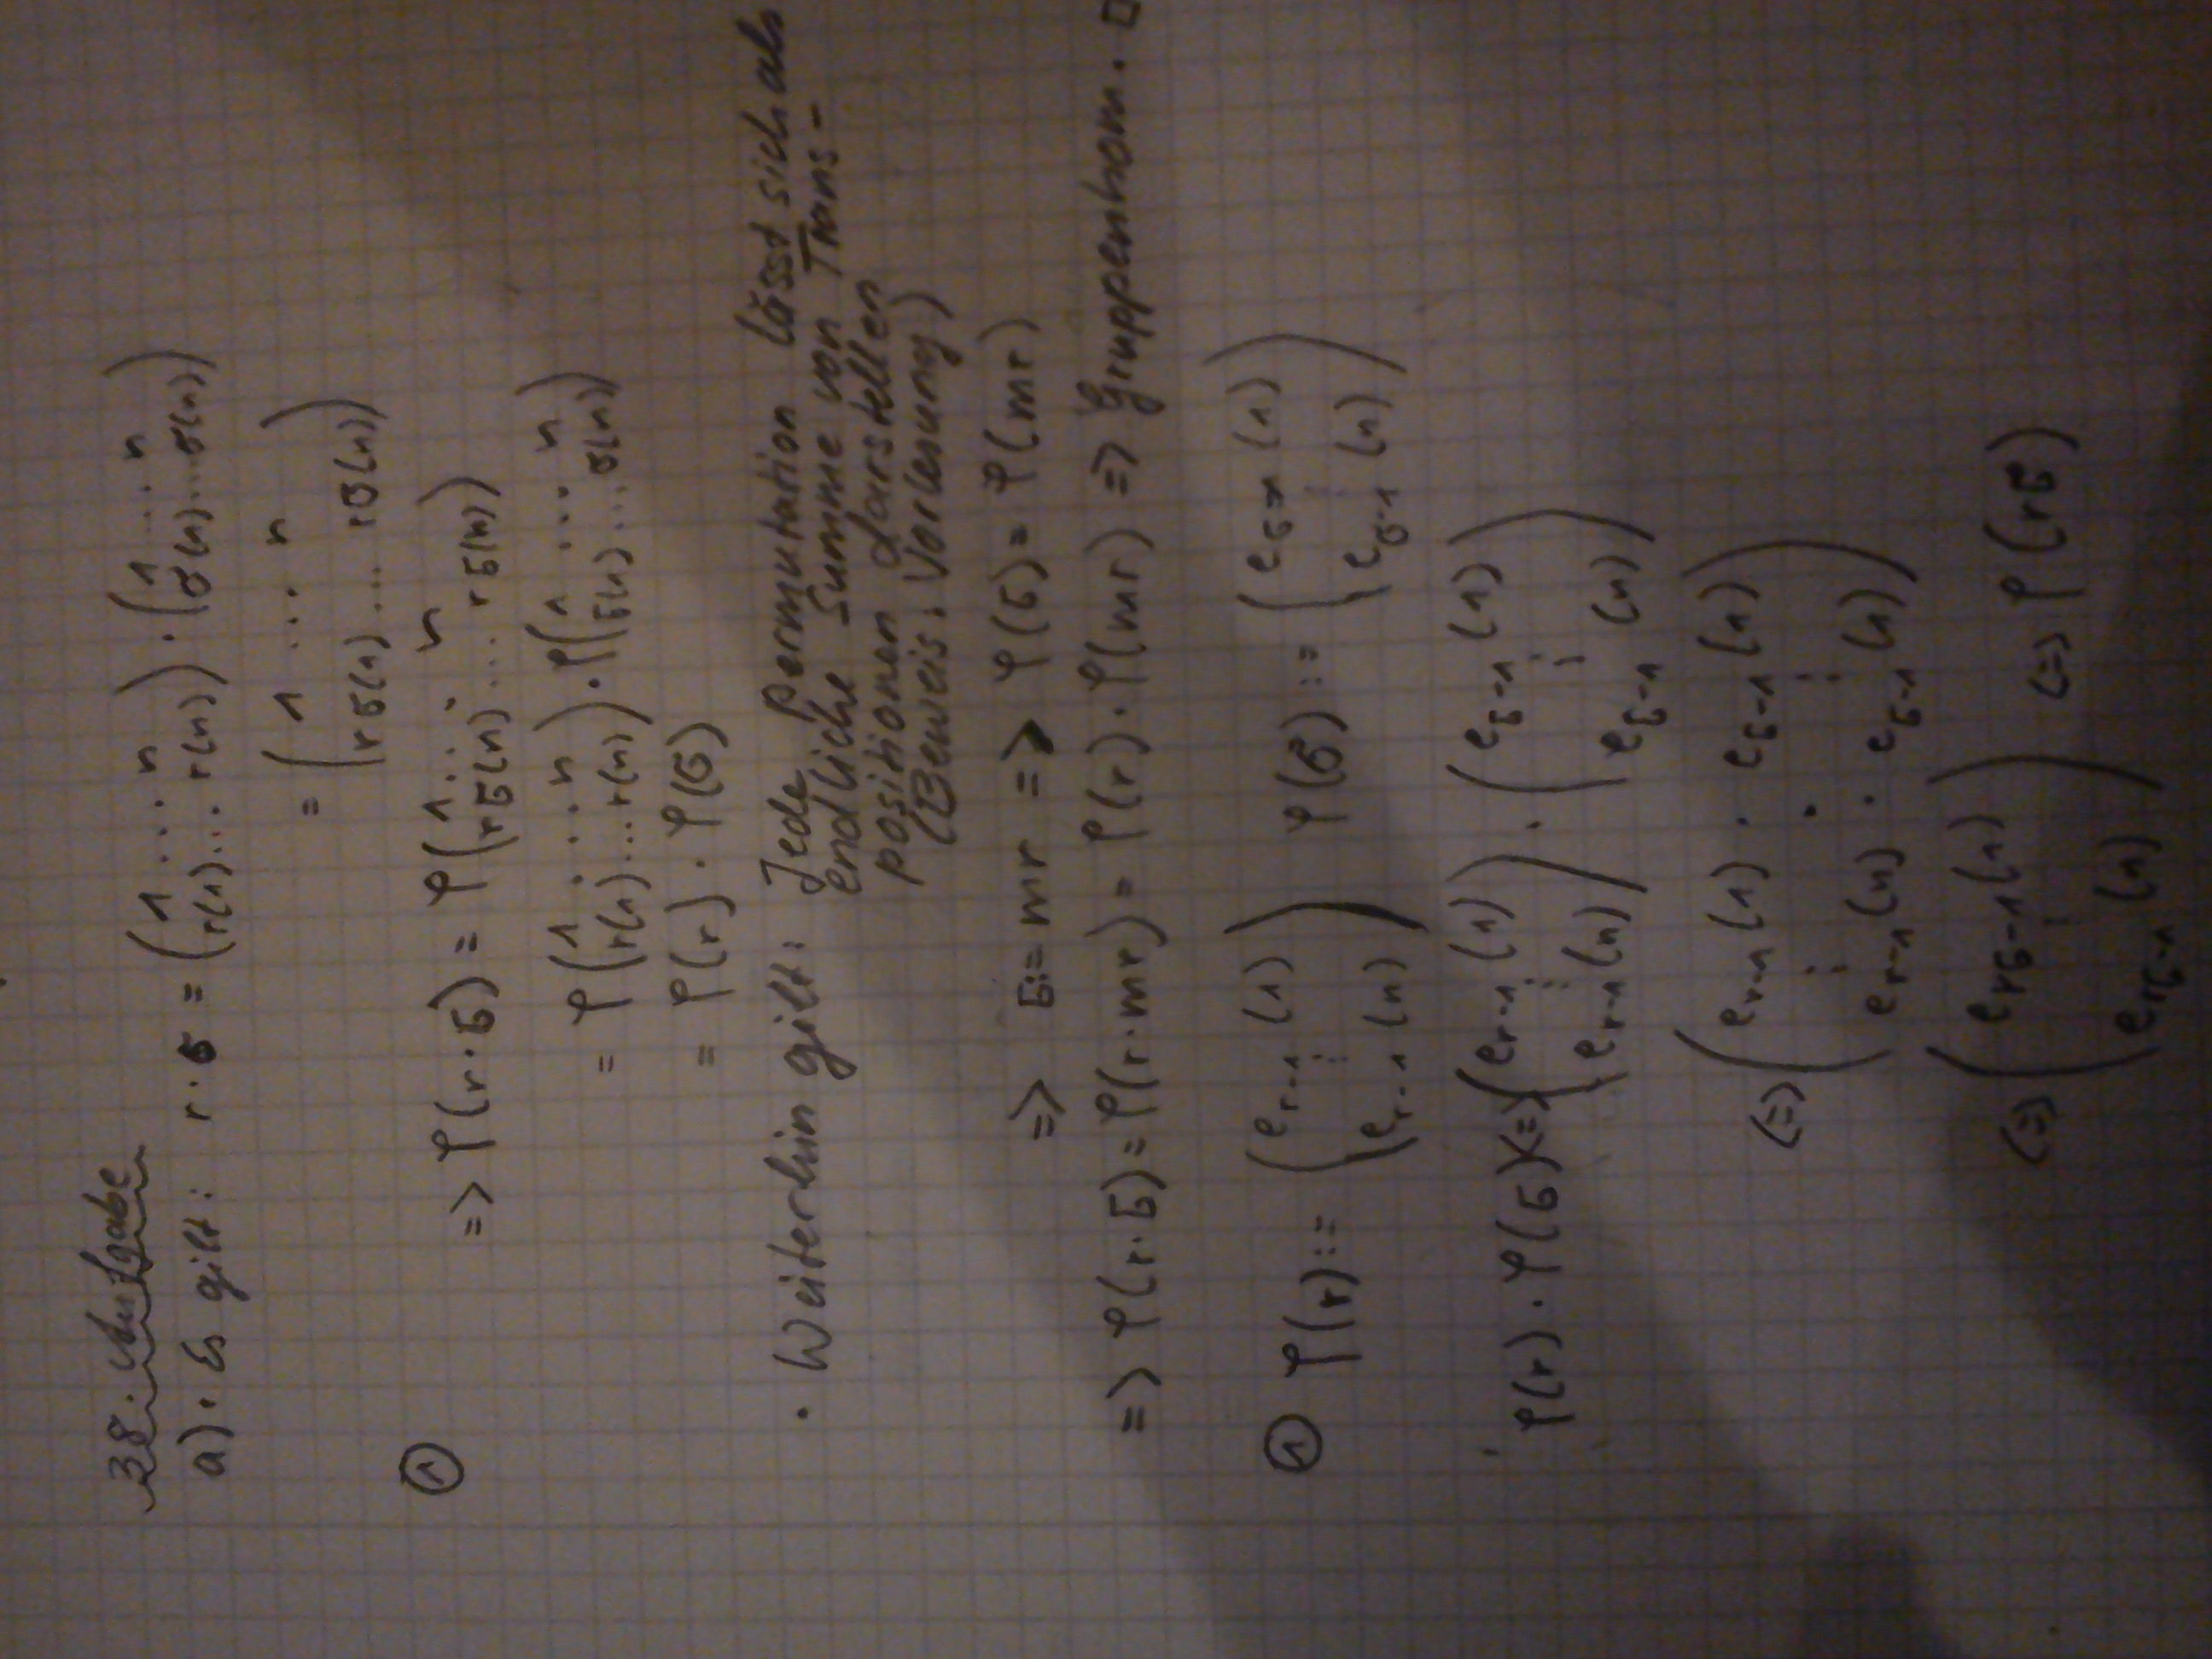 38. Aufgabe
a) • Es gilt: r · σ = (1 ... n / r(1) ... r(n)) · (1 ... n / σ(1) ... σ(n))
= (1 ... n / rσ(1) ... rσ(n))
① => φ(r · σ) = φ(1 ... n / rσ(1) ... rσ(n))
= φ(1 ... n / r(1) ... r(n)) · φ(1 ... n / σ(1) ... σ(n))
= φ(r) · φ(σ)
• Weiterhin gilt: Jede Permutation lässt sich als
endliche Summe von Trans-
positionen darstellen
(Beweis: Vorlesung)
=> σ := mr => φ(σ) = φ(mr)
=> φ(r · σ) = φ(r · mr) = φ(r) · φ(mr) => Gruppenhom. □
① φ(r) := (e r-1 (1) ⋮ e r-1 (n)) φ(σ) := (e σ-1 (1) ⋮ e σ-1 (n))
φ(r) · φ(σ) <=> (e r-1 (1) ⋮ e r-1 (n)) · (e σ-1 (1) ⋮ e σ-1 (n))
<=> (e r-1 (1) · e σ-1 (1) ⋮ · ⋮ e r-1 (n) · e σ-1 (n))
<=> (e rσ-1 (1) ⋮ e rσ-1 (n)) <=> φ(rσ)